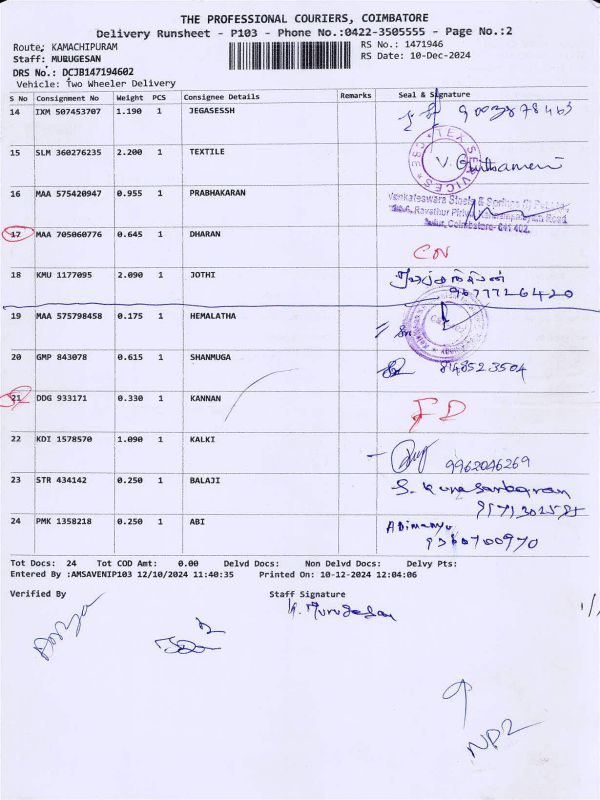 THE PROFESSIONAL COURIERS, COIMBATORE
Delivery Runsheet - P103 - Phone No.:0422-3505555 - Page No.:2
Route: KAMACHIPURAM
RS No.: 1471946
Staff: MURUGESAN
RS Date: 10-Dec-2024
DRS No.: DCJB147194602
Vehicle: Two Wheeler Delivery
S No Consignment No Weight PCS Consignee Details Remarks Seal & Signature
14 IXM 507453707 1.190 1 JEGASESSH
15 SLM 360276235 2.200 1 TEXTILE
TEX SERVICES
16 MAA 575420947 0.955 1 PRABHAKARAN
Venkateswara Steels & Springs
Coimbatore- 641 402.
17 MAA 705060776 0.645 1 DHARAN CN
18 KMU 1177095 2.090 1 JOTHI
9677726420
19 MAA 575798458 0.175 1 HEMALATHA
20 GMP 843078 0.615 1 SHANMUGA 8148523504
21 DDG 933171 0.330 1 KANNAN FD
22 KDI 1578570 1.090 1 KALKI 9962046269
23 STR 434142 0.250 1 BALAJI
24 PMK 1358218 0.250 1 ABI Abimanyu
Tot Docs: 24 Tot COD Amt: 0.00 Delvd Docs: Non Delvd Docs: Delvy Pts:
Entered By :AMSAVENIP103 12/10/2024 11:40:35 Printed On: 10-12-2024 12:04:06
Verified By Staff Signature
Murugesan
NP2